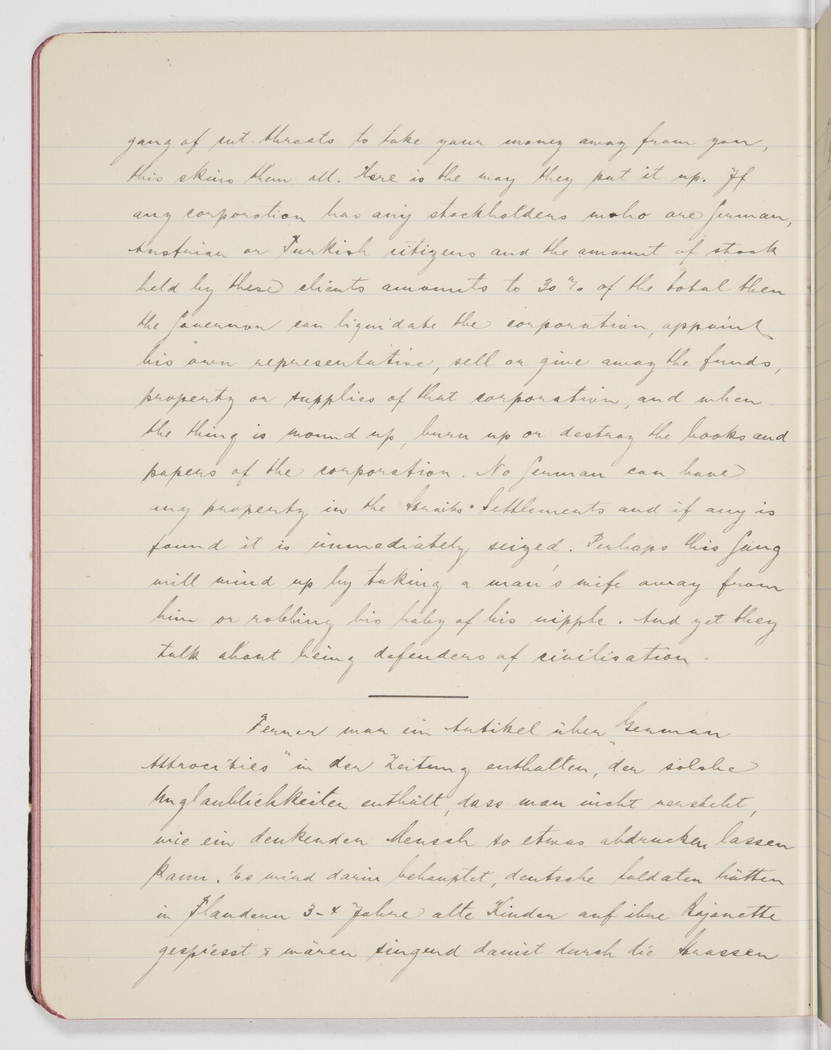 gang of cut-throats to take your money away from you,
this skins them all. Here is the way they put it up. If
any corporation has any stockholders who are German,
Austrian or Turkish citizens and the amount of stock
held by these clients amounts to 30% of the total then
the Governor can liquidate the corporation, appoint
his own representative, sell or give away the funds,
property or supplies of that corporation, and when
the thing is wound up, burn up or destroy the books and
papers of the corporation. No German can have
any property in the Straits-Settlements and if any is
found it is immediately seized. Perhaps this Gang
will wind up by taking a man's wife away from
him or robbing his baby of his nipple. And yet they
talk about being defenders of civilisation.
Ferner war ein Artikel über "German
Attrocities" in der Zeitung enthalten, der solche
Unglaublichkeiten enthält, dass man nicht versteht,
wie ein denkender Mensch so etwas abdrucken lassen
kann. Es wird darin behauptet, deutsche Soldaten hätten
in Flandern 3-4 Jahre alte Kinder auf ihre Bajonette
gespiesst & wären singend damit durch die Strassen